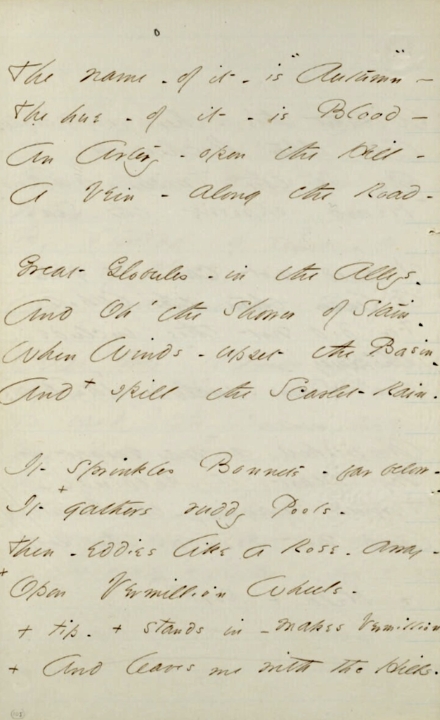 The name - of it - is "Autumn" -
The hue - of it - is Blood -
An Artery - upon the Hill -
A Vein - along the Road -
Great Globules - in the Alleys -
And Oh' the Shower of Stain -
When Winds - upset the Basin -
And + spill the Scarlet Rain -
It sprinkles Bonnets - far below -
It + gathers ruddy Pools -
Then - Eddies like a Rose - away -
+ Upon Vermillion Wheels -
+ tip - + stands in - makes Vermillion
+ And leaves me with the Hills.